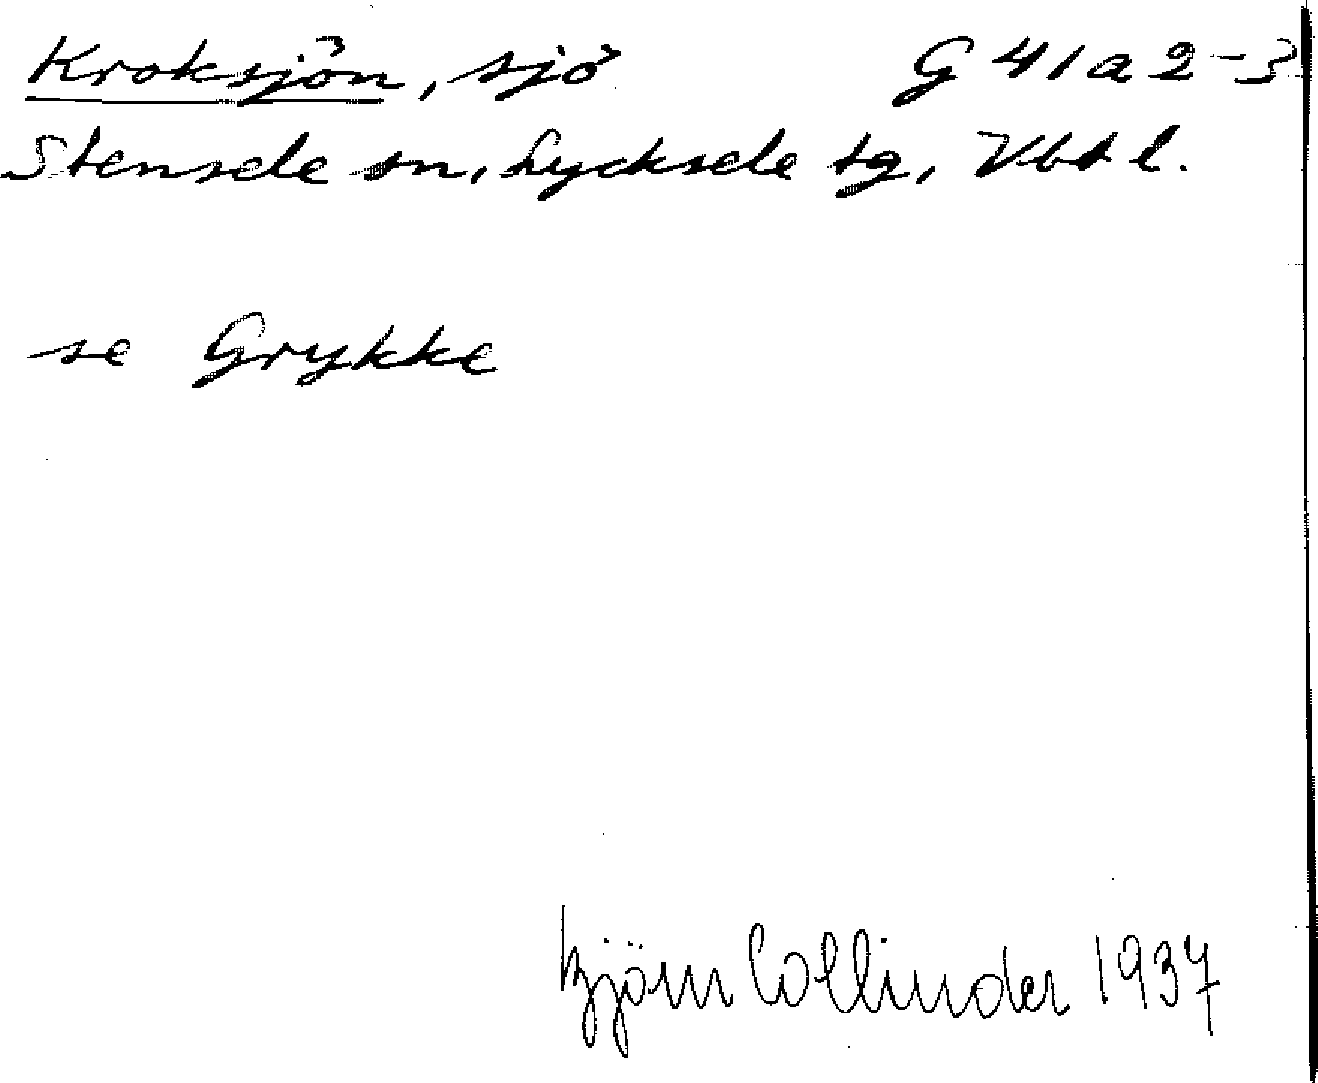 Kroksjön, sjö G 41 a 2-3
Stensele sn, Lycksele tg, Vbtl.
se Grykke
Björn Collinder 1937